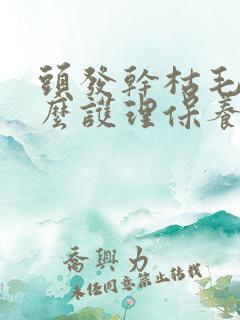 頭發幹枯毛
麼護理保養
喬興力
未経同意禁止转载